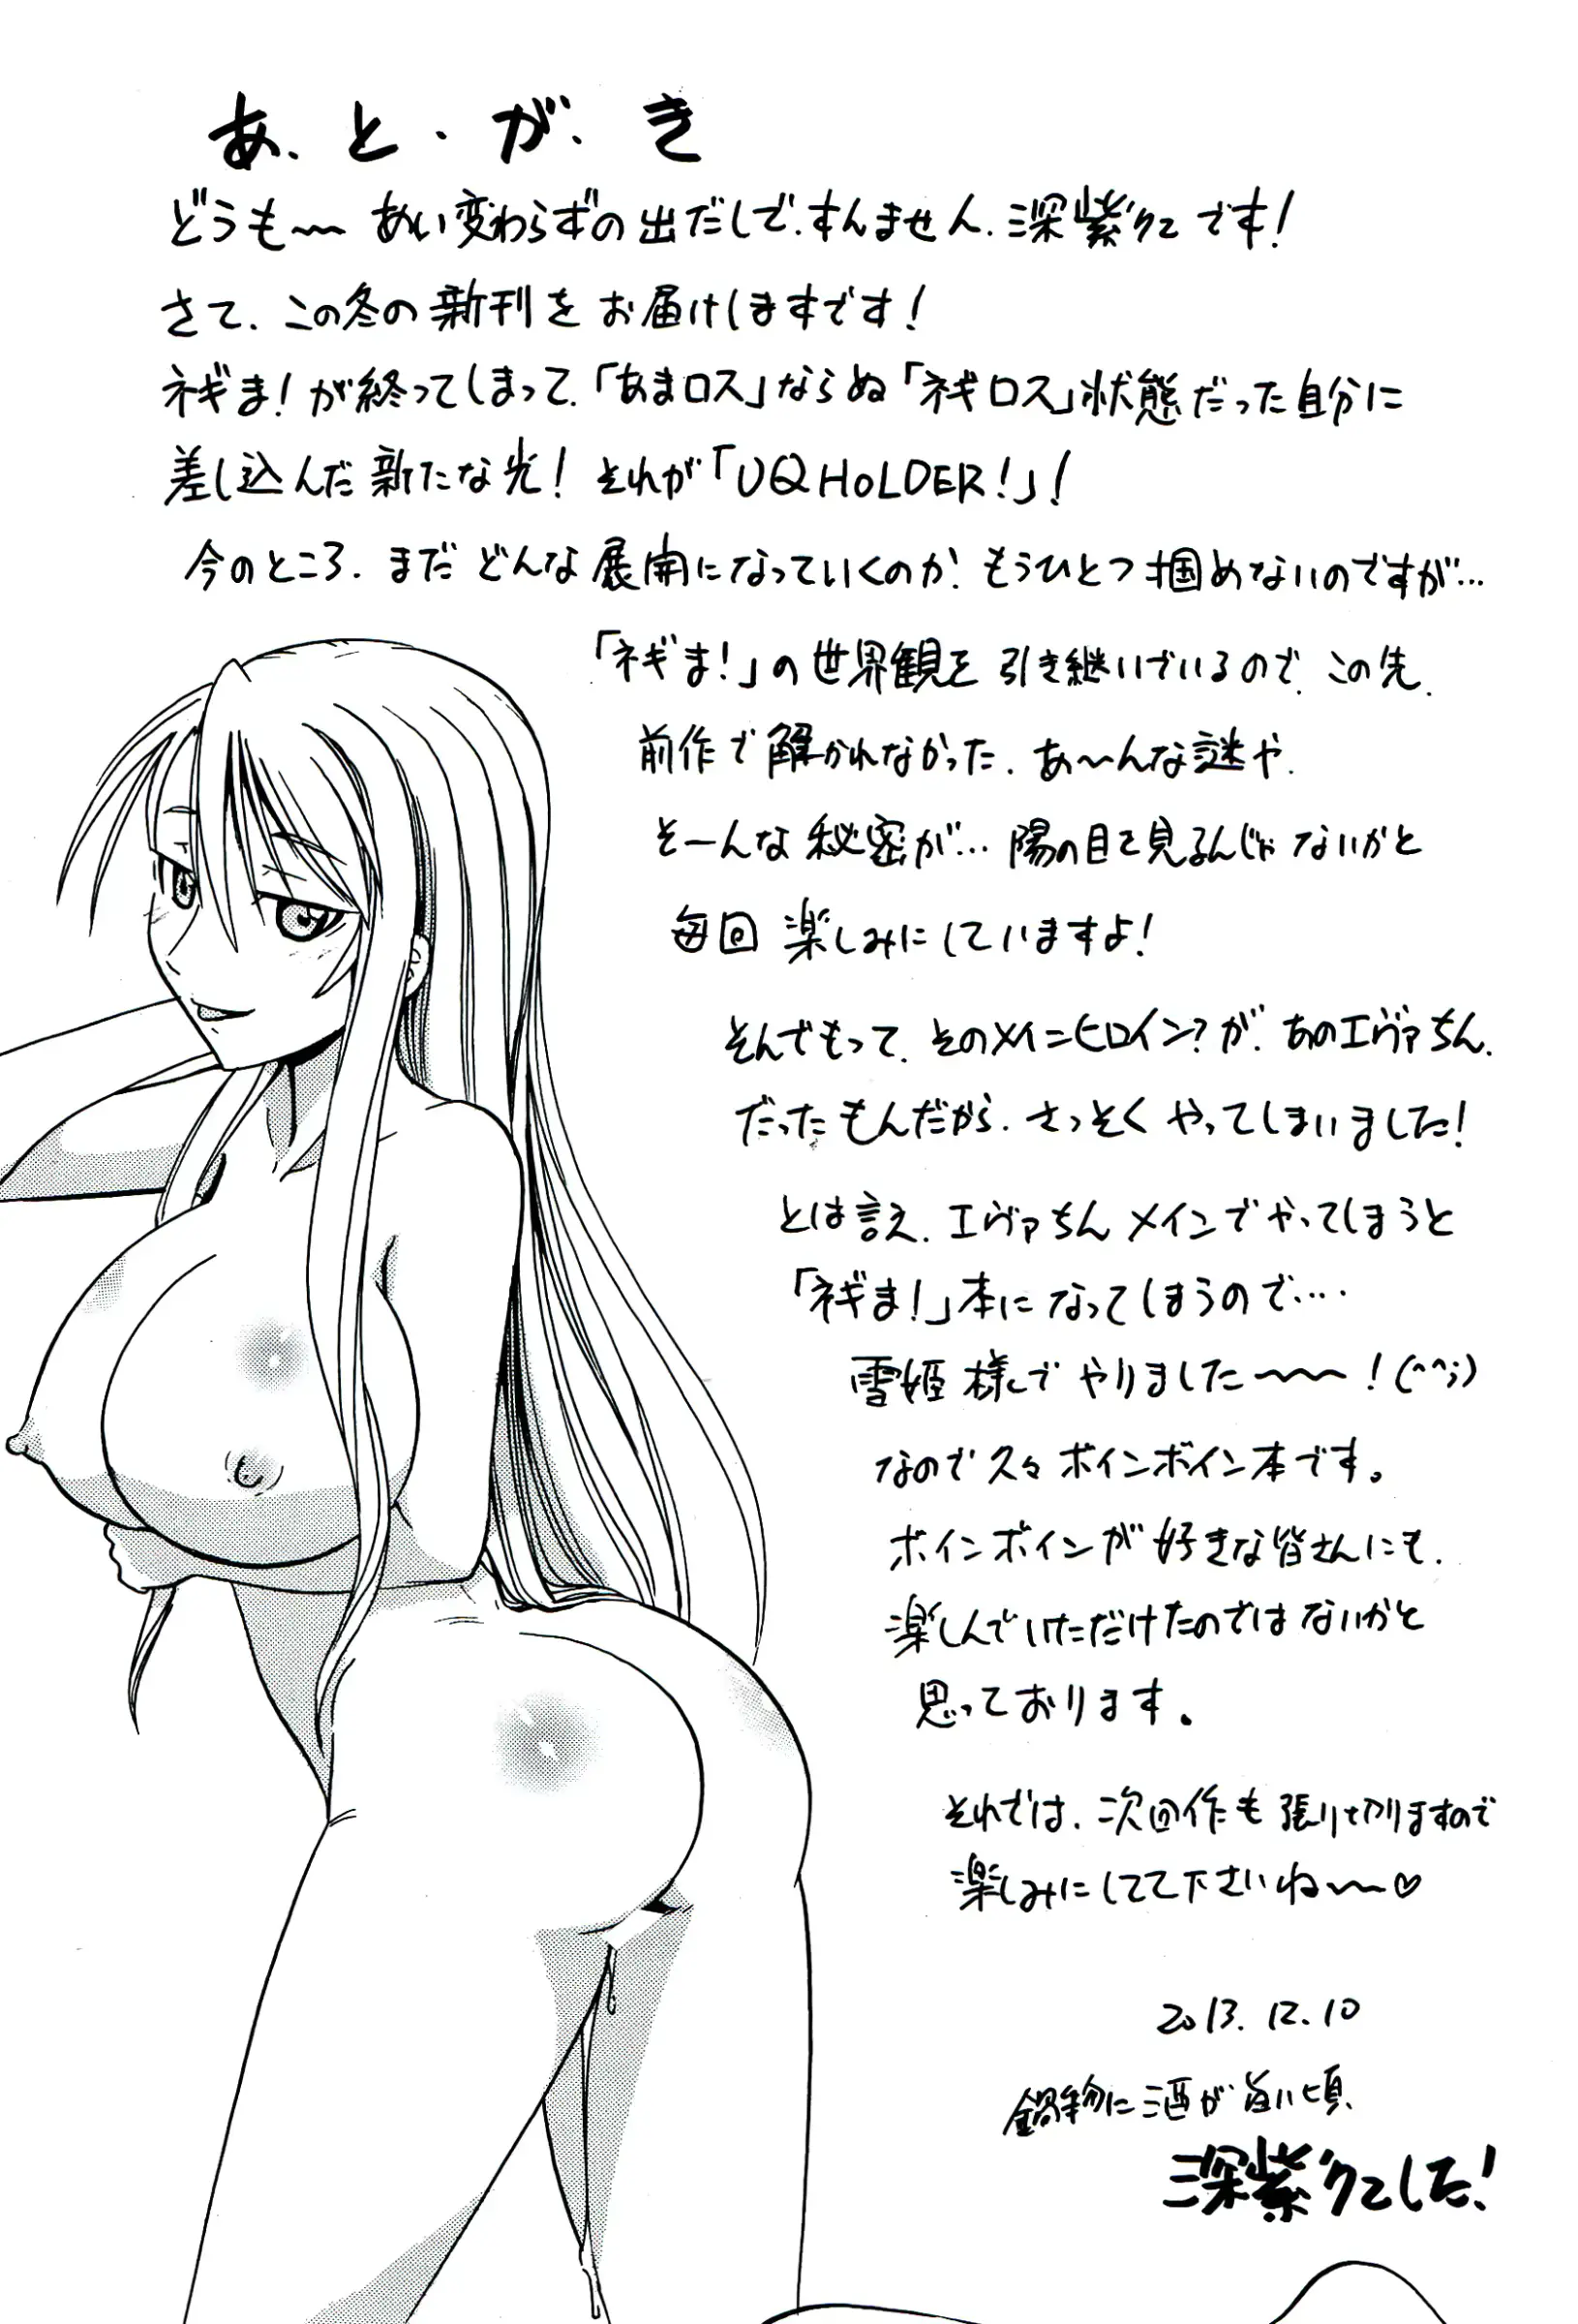 あ・と・が・き
どうも～ あい変わらずの出だしで、すんません、深紫クコです!
さて、この冬の新刊をお届けしますです!
ネギま!が終ってしまって、「あまロス」ならぬ「ネギロス」状態だった自分に
差し込んだ新たな光! それが「UQ HOLDER!」!
今のところ、まだどんな展開になっていくのか、もうひとつ掴めないのですが…
「ネギま!」の世界観を引き継いでいるので、この先、
前作で解かれなかった、あ～んな謎や、
そーんな秘密が… 陽の目を見るんじゃないかと
毎回 楽しみにしていますよ!
そんでもって、そのメインヒロイン?が、あのエヴァちん、
だったもんだから、さっそくやってしまいました!
とは言え、エヴァちんメインでやってしまうと
「ネギま!」本になってしまうので‥‥
雪姫様でやりました～～!(^^;)
なので久々ボインボイン本です。
ボインボインが好きな皆さんにも、
楽しんでいただけたのではないかと
思っております。
それでは、次回作も張り切りますので
楽しみにしてて下さいね～♡
2013.12.10
鍋物に酒が旨い頃、
深紫クコでした!